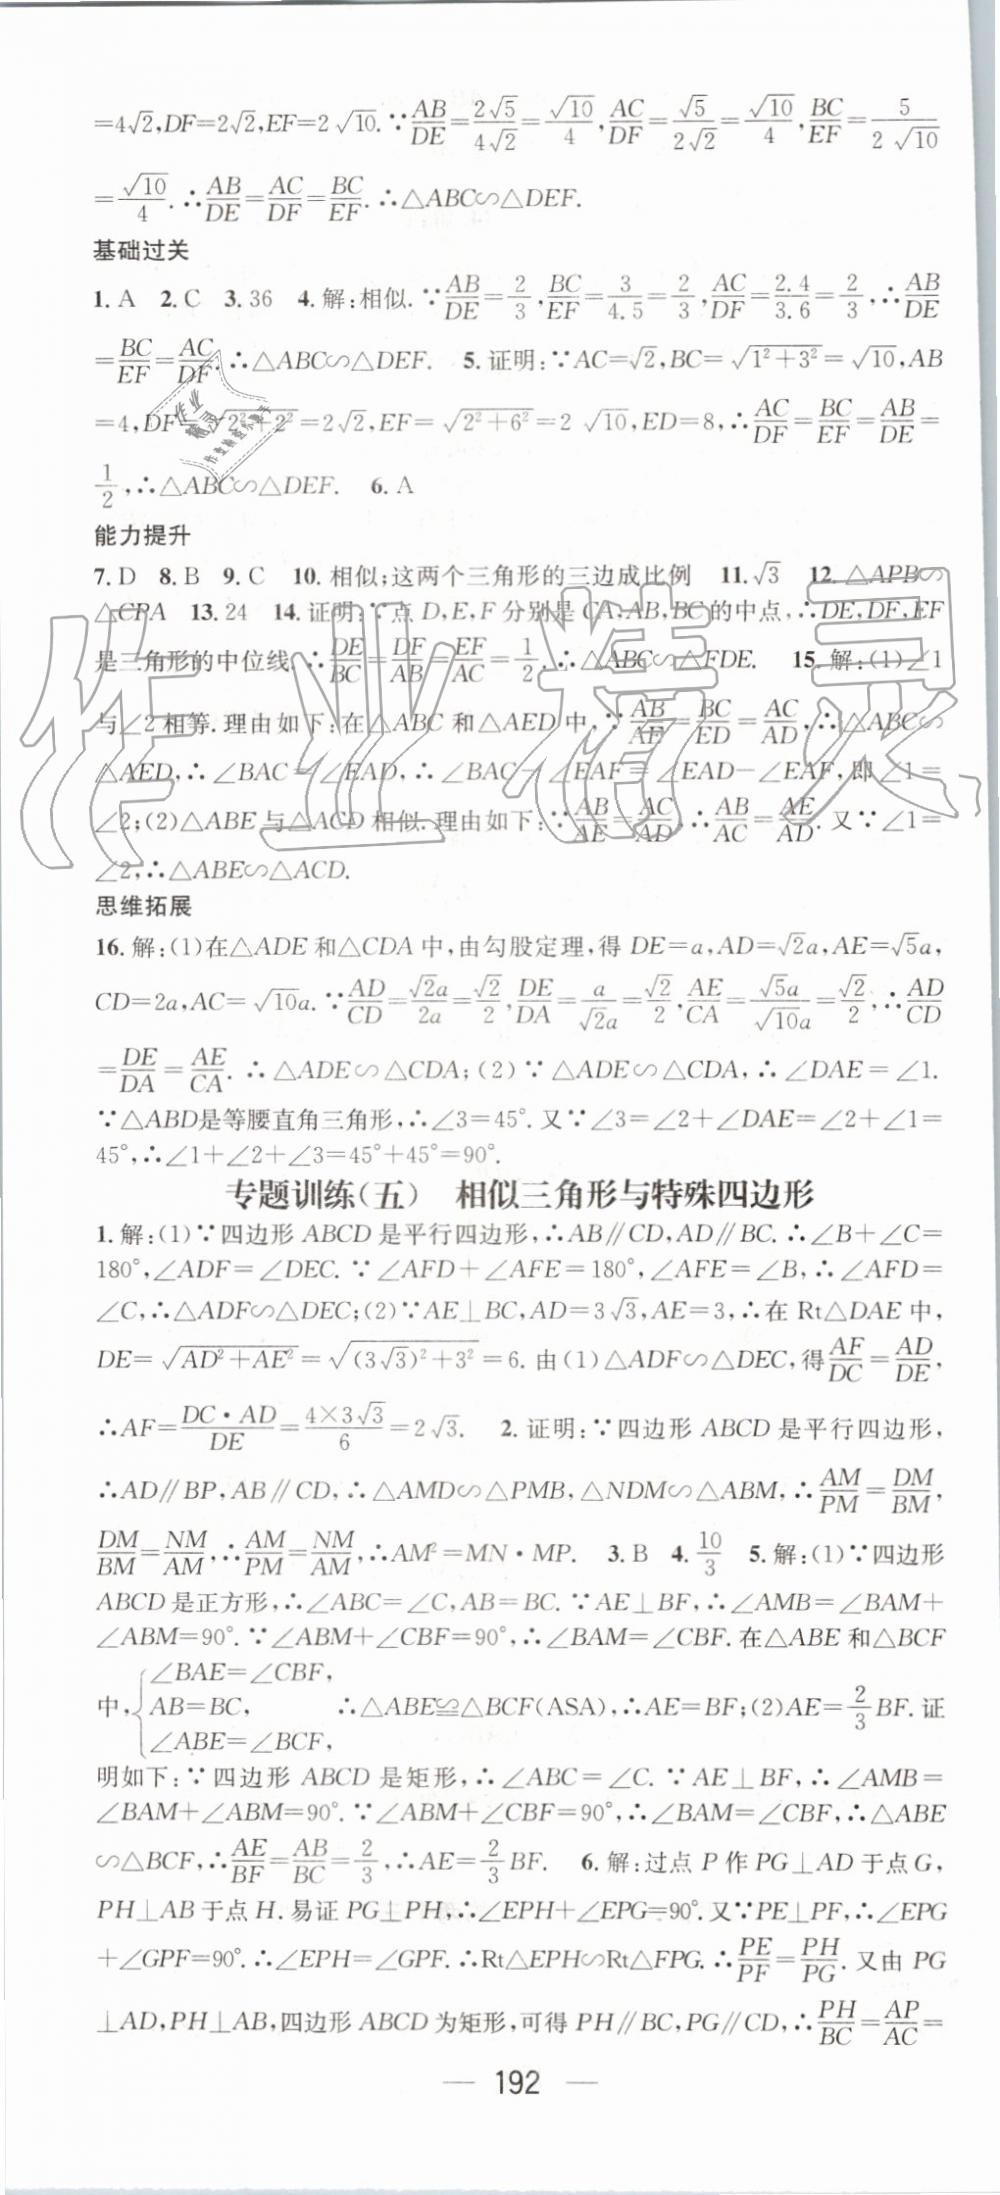 =4√2,DF=2√2,EF=2√10.∵AB/DE=2√5/4√2=√10/4,AC/DF=√5/2√2=√10/4,BC/EF=5/2√10
=√10/4.∴AB/DE=AC/DF=BC/EF.∴△ABC∽△DEF.
基础过关
1.A 2.C 3.36 4.解:相似.∵AB/DE=2/3,BC/EF=3/4.5=2/3,AC/DF=2.4/3.6=2/3,∴AB/DE
=BC/EF=AC/DF.∴△ABC∽△DEF. 5.证明:∵AC=√2,BC=√(1²+3²)=√10,AB
=4,DF=√(2²+2²)=2√2,EF=√(2²+6²)=2√10,ED=8,∴AC/DF=BC/EF=AB/DE=
1/2,∴△ABC∽△DEF. 6.A
能力提升
7.D 8.B 9.C 10.相似;这两个三角形的三边成比例 11.√3 12.△APB∽
△CPA 13.24 14.证明:∵点D,E,F分别是CA,AB,BC的中点,∴DE,DF,EF
是三角形的中位线.∴DE/BC=DF/AB=EF/AC=1/2.∴△ABC∽△FDE. 15.解:(1)∠1
与∠2相等.理由如下:在△ABC和△AED中,∵AB/AE=BC/ED=AC/AD,∴△ABC∽
△AED,∴∠BAC=∠EAD,∴∠BAC-∠EAF=∠EAD-∠EAF,即∠1=
∠2;(2)△ABE与△ACD相似.理由如下:∵AB/AE=AC/AD.∴AB/AC=AE/AD.又∵∠1=
∠2,∴△ABE∽△ACD.
思维拓展
16.解:(1)在△ADE和△CDA中,由勾股定理,得DE=a,AD=√2a,AE=√5a,
CD=2a,AC=√10a.∵AD/CD=√2a/2a=√2/2,DE/DA=a/√2a=√2/2,AE/CA=√5a/√10a=√2/2,∴AD/CD
=DE/DA=AE/CA.∴△ADE∽△CDA;(2)∵△ADE∽△CDA,∴∠DAE=∠1.
∵△ABD是等腰直角三角形,∴∠3=45°.又∵∠3=∠2+∠DAE=∠2+∠1=
45°,∴∠1+∠2+∠3=45°+45°=90°.
专题训练(五) 相似三角形与特殊四边形
1.解:(1)∵四边形ABCD是平行四边形,∴AB∥CD,AD∥BC.∴∠B+∠C=
180°,∠ADF=∠DEC.∵∠AFD+∠AFE=180°,∠AFE=∠B,∴∠AFD=
∠C,∴△ADF∽△DEC;(2)∵AE⊥BC,AD=3√3,AE=3,∴在Rt△DAE中,
DE=√(AD²+AE²)=√((3√3)²+3²)=6.由(1)△ADF∽△DEC,得AF/DC=AD/DE,
∴AF=DC·AD/DE=4×3√3/6=2√3. 2.证明:∵四边形ABCD是平行四边形,
∴AD∥BP,AB∥CD,∴△AMD∽△PMB,△NDM∽△ABM,∴AM/PM=DM/BM,
DM/BM=NM/AM,∴AM/PM=NM/AM,∴AM²=MN·MP. 3.B 4.10/3 5.解:(1)∵四边形
ABCD是正方形,∴∠ABC=∠C,AB=BC.∵AE⊥BF,∴∠AMB=∠BAM+
∠ABM=90°.∵∠ABM+∠CBF=90°,∴∠BAM=∠CBF.在△ABE和△BCF
中,{∠BAE=∠CBF,
AB=BC, ∴△ABE≌△BCF(ASA),∴AE=BF;(2)AE=2/3BF.证
∠ABE=∠BCF,
明如下:∵四边形ABCD是矩形,∴∠ABC=∠C.∵AE⊥BF,∴∠AMB=
∠BAM+∠ABM=90°.∵∠ABM+∠CBF=90°,∴∠BAM=∠CBF,∴△ABE
∽△BCF,∴AE/BF=AB/BC=2/3,∴AE=2/3BF. 6.解:过点P作PG⊥AD于点G,
PH⊥AB于点H.易证PG⊥PH,∴∠EPH+∠EPG=90°.又∵PE⊥PF,∴∠EPG
+∠GPF=90°.∴∠EPH=∠GPF.∴Rt△EPH∽Rt△FPG.∴PE/PF=PH/PG.又由PG
⊥AD,PH⊥AB,四边形ABCD为矩形,可得PH∥BC,PG∥CD,∴PH/BC=AP/AC=
— 192 —
作业精灵